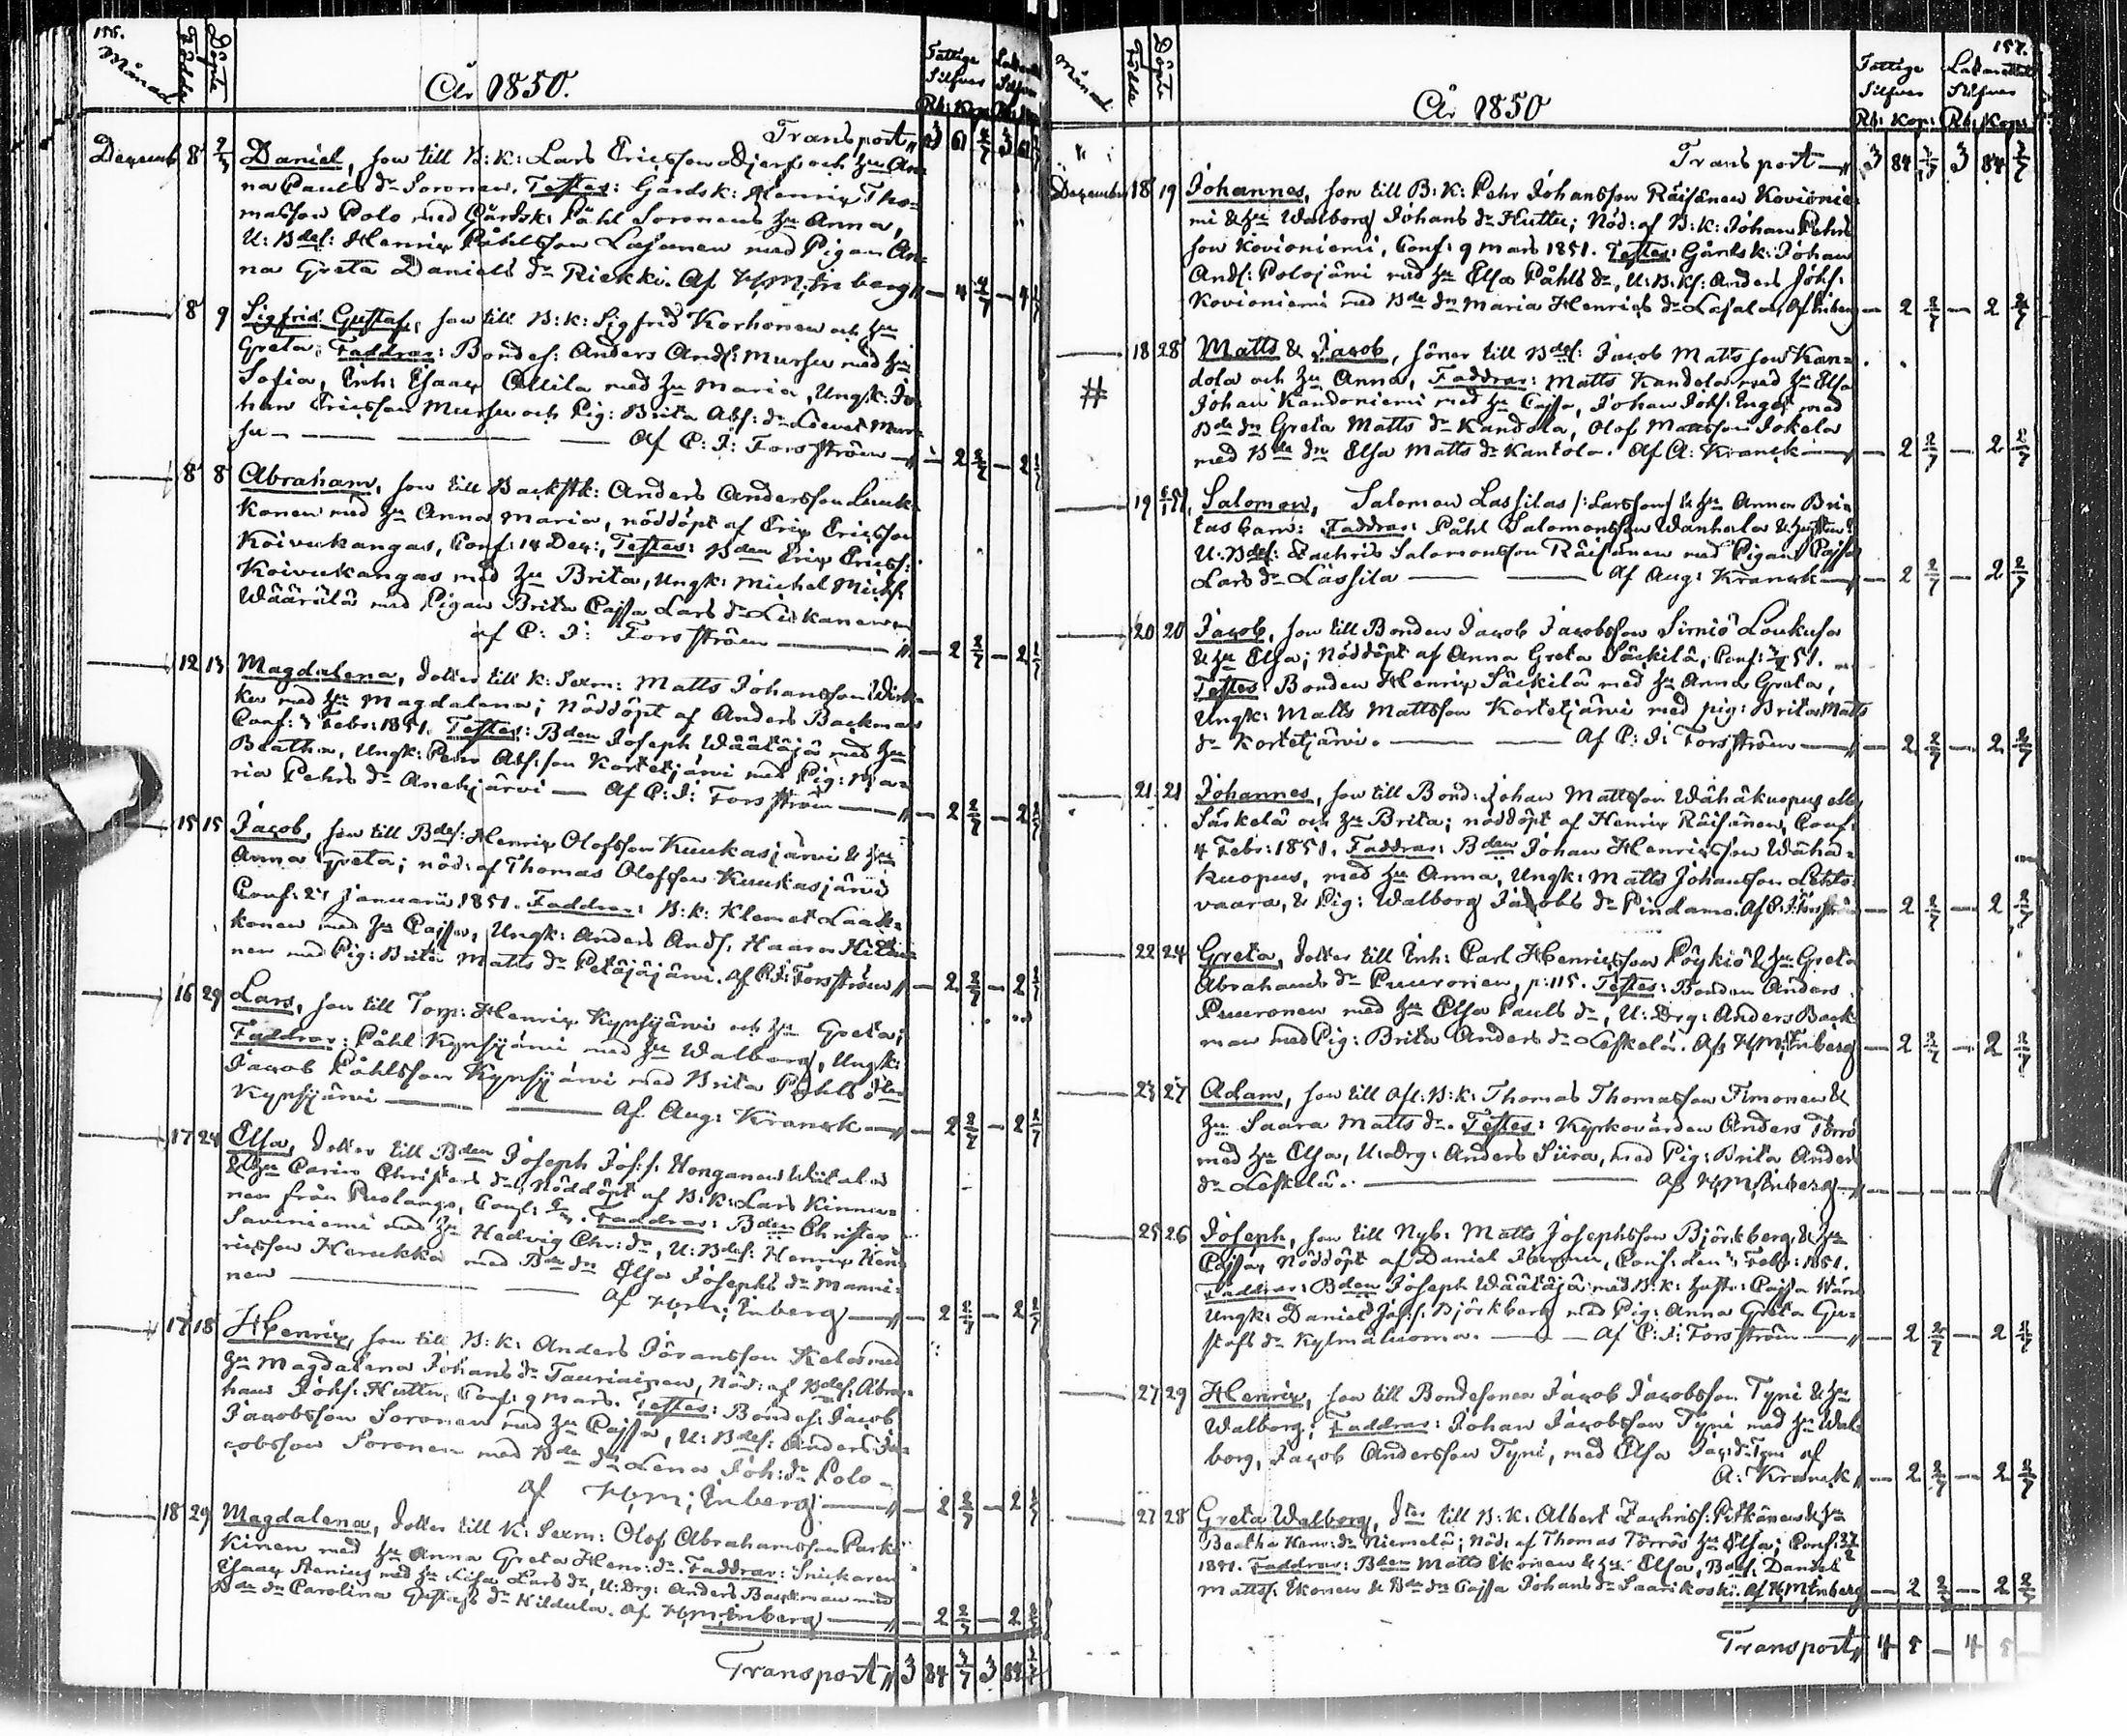 Månad Födde Döpte
År 1850.
Fattige Silfver
Rb: Kop:
Transport 3 61 3 61
Decemb. 8 Daniel, son till B: k: Lars Ericsson Djerf och hu An-
na Pauls dr Soronen. Testes: Gårdsk: Henrix Tho-
masson Polo med Gårdsk: Påhl Soronens hu Anna,
U: Bdes: Henrix Påhlsson Lasanen med Pigan An-
na Greta Daniels dr Riekki. Af H: M: Enberg — 4 — 4
8 9 Sigfrid Gustaf, son till B: k: Sigfrid Korhonen och hu
Greta; Faddrar: Bondes: Anders Ands: Mursu med hu
Sofia, Enh: Esaax Ollila med hu Maria, Ungk: Jo-
han Ericsson Mursu och Pig: Brita Abs: dr Mur-
su — Af C: J: Forsström — 2 2/7 — 2
8 8 Abraham, son till Backstk: Anders Andersson
konen med hu Anna Maria, nöddöpt af Erix Ericsson
Koivukangas, Conf: 14 Dec:, Testes: Bden Erix Ericss:
Koivukangas med hu Brita, Ungk: Michel Michs:
Wäärälä med Pigan Brita Cajsa Lars dr
af C: J: Forsström — 2 2/7 — 2
12 13 Magdalena, dotter till K: Sexm: Matts Johansson
med hu Magdalena; Nöddöpt af Anders Backman
Conf: 3 Febr: 1851. Testes: Bden Joseph Wäätäjä med hu
Beatha, Ungk: Pehr Abs:son Kortetjärvi med Pig: Ma-
ria Pehrs dr Anetjärvi — Af C: J: Forsström — 2 2/7 — 2
15 15 Jacob, son till Bdes: Henrix Olofsson Kuukasjärvi & hu
Anna Greta; nöd: af Thomas Olofsson Kuukasjärvi
Conf: 27 Januarii 1851. Faddrar: B: k: Klemet Laak-
konen med hu Cajsa, Ungk: Anders Ands: Haara
nen med Pig: Brita Matts dr Petäjäjärvi. Af C: J: Forsström — 2 2/7 — 2
16 29 Lars, son till Torp: Henrix Kynsijärvi och hu Greta;
Faddrar: Påhl Kynsijärvi med hu Walborg, Ungk:
Jacob Påhlsson Kynsijärvi med Brita Påhls
Kynsijärvi — Af Aug: Kranck — 2 2/7 — 2 2/7
17 24 Elsa, dotter till Bden Joseph Jos:s: Honganen
& hu Carin Christers dr, Nöddöpt af B: k: Lars Kinnu-
nen från Puolango, Conf: Faddrar: Bden Christer
Saviniemi med hu Hedvig Chr: dr, U: Bdes: Henrix Hen-
ricsson Herukka med Bde dn Elsa Josephs dr Manni-
nen — Af H: M: Enberg — 2 2/7 — 2 2/7
17 18 Henrix, son till B: k: Anders Göransson Kela med
hu Magdalena Johans dr Tauriainen, Nöd: af Bdes: Abra-
ham Johs: Huttu, Conf: 9 Mars. Testes: Bondes: Jacob
Jacobsson Soronen med hu Cajsa, U: Bdes: Anders Ja-
cobsson Soronen med Bde dn Lena Joh: dr Polo —
af H: M: Enberg — 2 2/7 — 2
18 29 Magdalena, dotter till K: Sexm: Olof Abrahamsson Park-
kinen med hu Anna Greta Henr: dr. Faddrar: Snickaren
Esaax Stenius med hu Lisa Lars dr, U: Drg: Anders Backman med
Bde dn Carolina Gustafs dr Hildula. Af H: M: Enberg — 2 2/7 — 2 2/7
Transport 3 84 3/7 3 84 3/7
157.
Månad Födde Döpte
År 1850
Fattige Silfver
Rb: Kop: Rb: Kop:
Transport — 3 84 3/7 3 84 3/7
December 18 19 Johannes, son till B: k: Pehr Johansson Räisänen Kovionie-
mi & hu Walborg Johans dr Huttu; Nöd: af B: k: Johan Pehrs
son Kovioniemi, Conf: 9 Mars 1851. Testes: Gårdsk: Johan
Ands: Polojärvi med hu Elsa Påhls dr, U: B: ks: Anders Johs:
Kovioniemi med Bde dn Maria Henrics dr Lasala. Af Enberg — 2 2/7 — 2 2/7
18 28 Matts & Jacob, söner till Bdes: Jacob Mattsson Kan-
# dola och hu Anna, Faddrar: Matts Kandola med hu Elsa
Johan Kandoniemi med hu Cajsa, Johan Johs: med
Bde dn Greta Matts dr Kandola, Olof Mattsson Jokela
med Bde dn Elsa Matts dr Kantola. Af A: Kranck — 2 2/7 — 2 2/7
19 Salomon, Salomon Lassilas /: Larsson/ & hu Anna Bri-
tas barn: Faddrar: Påhl Salomonsson Wanhala &
U: Bdes: Zachris Salomonsson Räisänen med Pigan Cajsa
Lars dr Lassila — Af Aug: Kranck — 2 2/7 — 2 2/7
20 20 Jacob, son till Bonden Jacob Jacobsson Sirniö Loukusa
& hu Elsa; Nöddöpt af Anna Greta Säckilä, Conf: 51.
Testes: Bonden Henrix Säckilä med hu Anna Greta,
Ungk: Matts Mattsson Kortetjärvi med pig: Brita Matts
dr Kortetjärvi. — Af C: J: Forsström — 2 2/7 — 2 2/7
21 21 Johannes, son till Bond: Johan Mattsson Wähäkuopus ell:
Särkelä och hu Brita; nöddöpt af Henrix Räisänen, Conf:
4 Febr: 1851. Faddrar: Bden Johan Henricsson Wähä-
kuopus, med hu Anna, Ungk: Matts Johansson Lehto-
vaara, & Pig: Walborg Jakobs dr Pindamo. Af C: J: Forsström — 2 2/7 — 2 2/7
22 24 Greta, dotter till Enh: Carl Henricsson Pöykiö & hu Greta
Abrahams dr Puuronen, p: 115. Testes: Bonden Anders
Puuronen med hu Elsa Pauls dr, U: Drg: Anders Back-
man med Pig: Brita Anders dr Leskelä. Af H: M: Enberg — 2 2/7 — 2 2/7
23 27 Adam, son till Afl: B: k: Thomas Thomasson Fimonen &
hu Saara Matts dr. Testes: Kyrkovärden Anders Törrö
med hu Elsa, U: Drg: Anders Siira, med Pig: Brita Anders
dr Leskelä. — Af H: M: Enberg —
25 26 Joseph, son till Nyb: Matts Josephsson Björkberg, & hu
Cajsa, Nöddöpt af Daniel Conf: den Febr: 1851.
Faddrar: Bden Joseph Wäätäjä med B: k: hustr: Cajsa
Ungk: Daniel Jos:s: Björkberg med Pig: Anna Greta Gu-
stafs dr Kylmäluoma. — Af C: J: Forsström — 2 2/7 — 2 2/7
27 29 Henrix, son till Bondesonen Jacob Jacobsson Tyni & hu
Walborg; Faddrar: Johan Jacobsson Tyni med hu Wal-
borg, Jacob Andersson Tyni, med Elsa Jac: dr Tyni af
A: Kranck — 2 2/7 — 2 2/7
27 28 Greta Walborg, dter till B: k: Albert Zachriss: Pitkänen & hu
Beatha Henr: dr Niemelä; Nöd: af Thomas Törrös hu Elsa; Conf:
1851. Faddrar: Bden Matts Ekonen & hu Elsa, Bdes: Daniel
Mattss: Ekonen & Bde dn Cajsa Johans dr Saarikoski. Af H: M: Enberg — 2 2/7 — 2 2/7
Transport 4 5 — 4 5 —